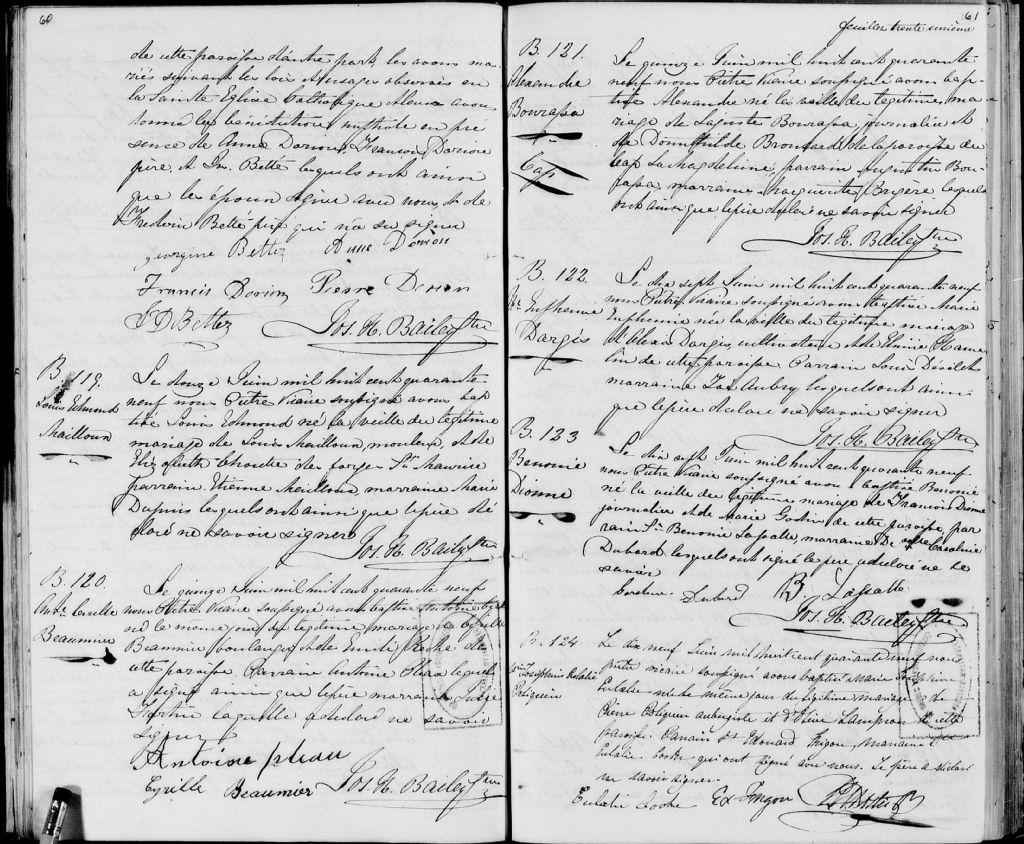 60
de cette paroisse d'autre part, les avons ma-
riés suivant les lois & usages observés en
la Sainte Eglise Catholique & leur avons
donné la bénédiction nuptiale en pré
sence de Anne Dorion, François Dorion
père, & Betté lesquels ont ainsi
que les époux signé avec nous, & de
Frederic Betté père qui n'a su signer
Georgine Bettez Anne Dorion
Francis Dorion Pierre Dorion
Bettez Jos. H. Bailey Ptre
B. 119.
Louis Edmond
Mailloux
Le douze Juin mil huit cent quarante
neuf nous Prêtre Vicaire soussigné avons bap
tisé Louis Edmond né la veille du légitime
mariage de Louis Mailloux, mouleur, & de
Elizabeth des forges St. Maurice
parrain Etienne Mailloux, marraine Marie
Dupuis lesquels ont ainsi que le père dé
claré ne savoir signer
Jos. H. Bailey Ptre
B. 120.
Ant. Cyrille
Beaumier
Le quinze Juin mil huit cent quarante neuf
nous Prêtre Vicaire soussigné avons baptisé Antoine Cyrille
né le même jour du légitime mariage de Cyrille
Beaumier boulanger & de Emilie de
cette paroisse. Parrain Antoine lequel
a signé ainsi que le père marraine
Fortin laquelle a déclaré ne savoir
signer
Antoine
Cyrille Beaumier Jos. H. Bailey Ptre
61
feuillet trente unième
B. 121.
Alexandre
Bourassa
Cap
Le quinze Juin mil huit cent quarante
neuf nous Prêtre Vicaire soussigné avons bap-
tisé Alexandre né la veille du légitime ma
riage de Bourassa, journalier &
de Brousard de la paroisse du
Cap La Magdeleine, parrain Augustin Bou-
rassa, marraine Marguerite Bruyère lesquels
ont ainsi que le père déclaré ne savoir signer
Jos. H. Bailey Ptre
B. 122.
Me. Euphemie
Dargis
Le dix sept Juin mil huit cent quarante neuf
nous Prêtre Vicaire soussigné avons baptisé Marie
Euphemie née la veille du légitime mariage
d'Alexis Dargis cultivateur & de Hame
lin de cette paroisse. Parrain Louis
marraine Aubry lesquels ont ainsi
que le père déclaré ne savoir signer
Jos. H. Bailey Ptre
B. 123
Benonie
Dionne
Le dix sept Juin mil huit cent quarante neuf
nous Prêtre Vicaire soussigné avons baptisé Benonie
né la veille du légitime mariage de François Dionne
journalier & de Marie Godin de cette paroisse, par
rain Sr. Benonie Lassalle, marraine Caroline
Dubord lesquels ont signé le père a déclaré ne le
savoir
Caroline Dubord B. Lassalle
Jos. H. Bailey Ptre
B. 124
Me Josephine Eulalie
Poliquin
Le dix neuf Juin mil huit cent quarante neuf nous
Prêtre vicaire soussigné avons baptisé Marie Josephine
Eulalie née le même jour du légitime mariage de
Pierre Poliquin aubergiste et d'Elise Lampron de cette
paroisse. Parrain Sr Edouard Frigon, marraine
Eulalie qui ont signé avec nous. Le père a déclaré
ne savoir signer.
Eulalie Ed Frigon